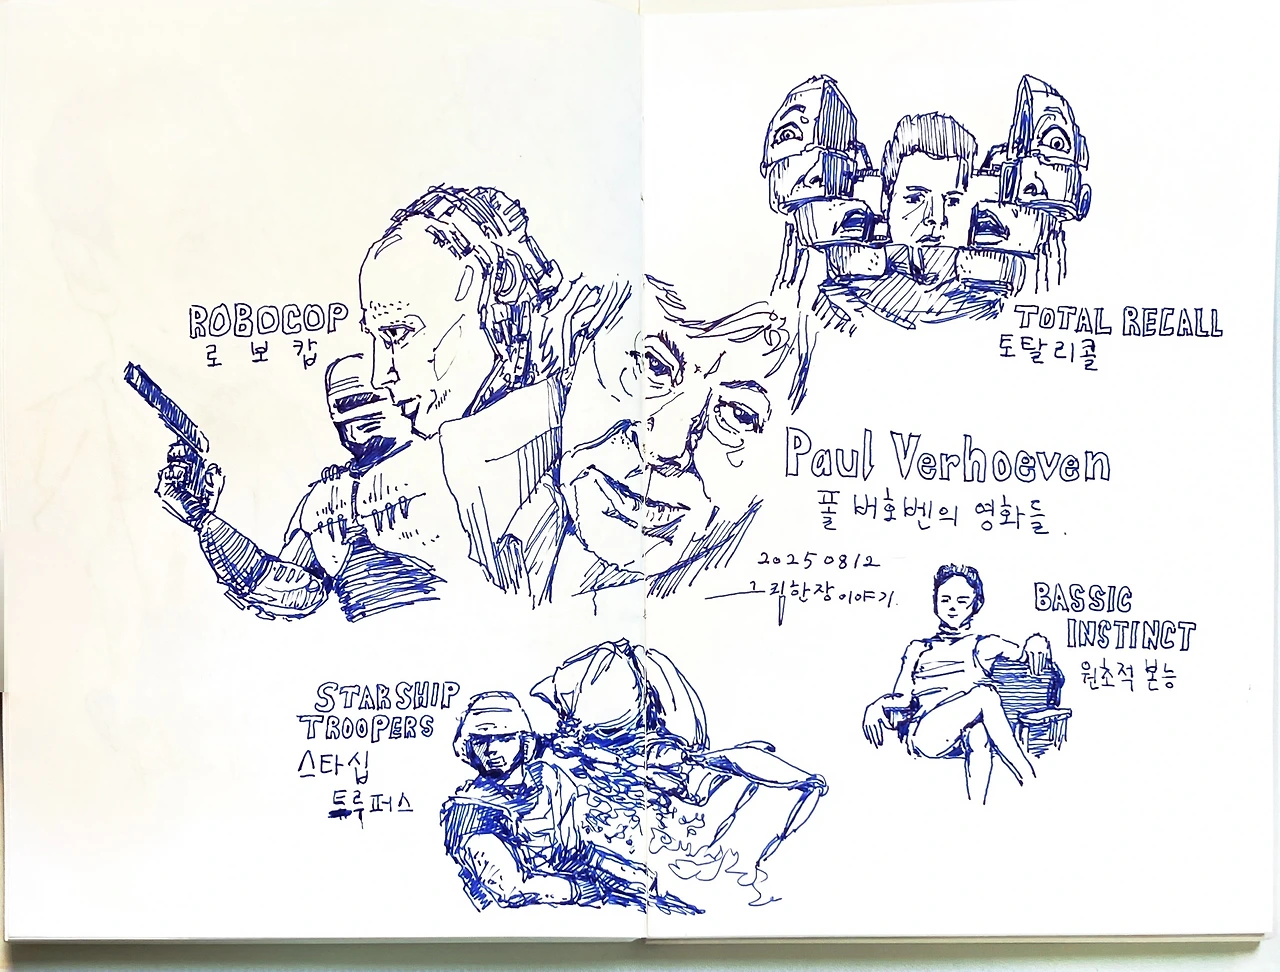 ROBOCOP
로보캅
TOTAL RECALL
토탈리콜
Paul Verhoeven
폴 버호벤의 영화들.
20250812
그림한장이야기.
BASSIC
INSTINCT
원초적 본능
STARSHIP
TROOPERS
스타십
트루퍼스